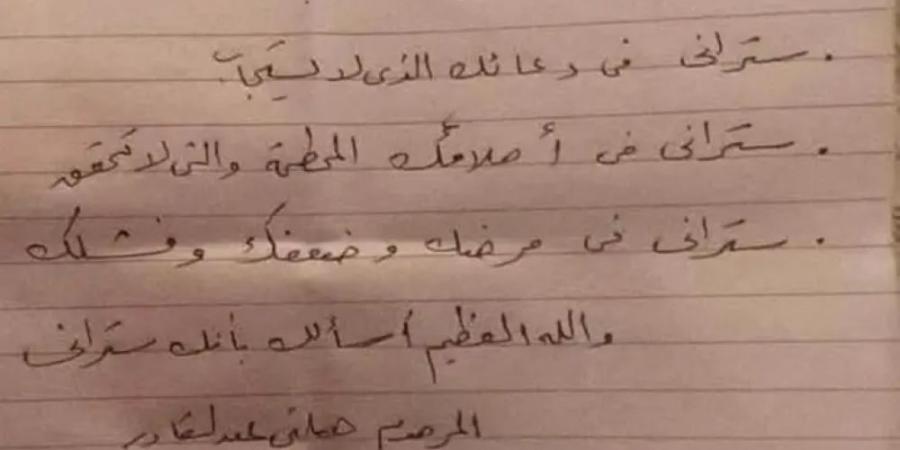 . ستراني في دعائك الذي لا يستجاب
. ستراني في أحلامك المحطمة والتي لا تحقق
. ستراني في مرضك وضعفك وفشلك
والله العظيم أسألك بأنك ستراني
المرحوم هاني عبد القادر